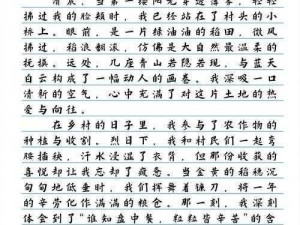 清晨，当第一缕阳光穿透薄雾，轻轻
拂过我的脸颊时，我已经站在了村头的小
桥上。眼前，是一片绿油油的稻田，微风
拂过，稻浪翻滚，仿佛是大自然最温柔的
抚摸。远处，几座青山若隐若现，与蓝天
白云构成了一幅动人的画卷。我深吸一口
清新的空气，心中充满了对这片土地的热
爱与向往。
在乡村的日子里，我参与了农作物的
种植与收割。烈日下，我和村民们一起弯
腰插秧，汗水浸湿了衣背，但那份收获的
喜悦却让我忘却了疲惫。当金黄的稻穗沉
甸甸地低垂时，我们挥舞着镰刀，将一年
的辛劳化作满满的粮仓。那一刻，我深刻
体会到了“谁知盘中餐，粒粒皆辛苦”的含